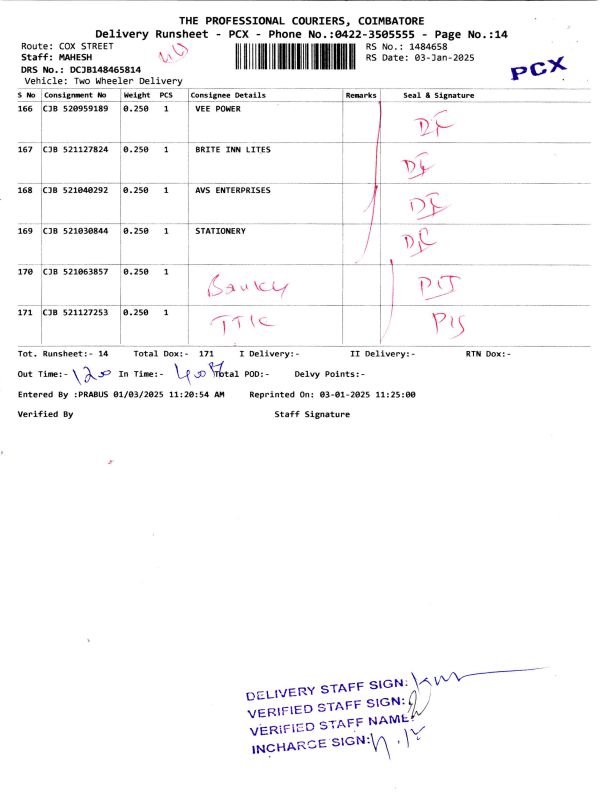 THE PROFESSIONAL COURIERS, COIMBATORE
Delivery Runsheet - PCX - Phone No.:0422-3505555 - Page No.:14
Route: COX STREET RS No.: 1484658
Staff: MAHESH RS Date: 03-Jan-2025
DRS No.: DCJB148465814 PCX
Vehicle: Two Wheeler Delivery
S No Consignment No Weight PCS Consignee Details Remarks Seal & Signature
166 CJB 520959189 0.250 1 VEE POWER
167 CJB 521127824 0.250 1 BRITE INN LITES
168 CJB 521040292 0.250 1 AVS ENTERPRISES
169 CJB 521030844 0.250 1 STATIONERY
170 CJB 521063857 0.250 1
171 CJB 521127253 0.250 1
Tot. Runsheet:- 14 Total Dox:- 171 I Delivery:- II Delivery:- RTN Dox:-
Out Time:- 1200 In Time:- 400 Total POD:- Delvy Points:-
Entered By :PRABUS 01/03/2025 11:20:54 AM Reprinted On: 03-01-2025 11:25:00
Verified By Staff Signature
DELIVERY STAFF SIGN:
VERIFIED STAFF SIGN:
VERIFIED STAFF NAME:
INCHARGE SIGN: